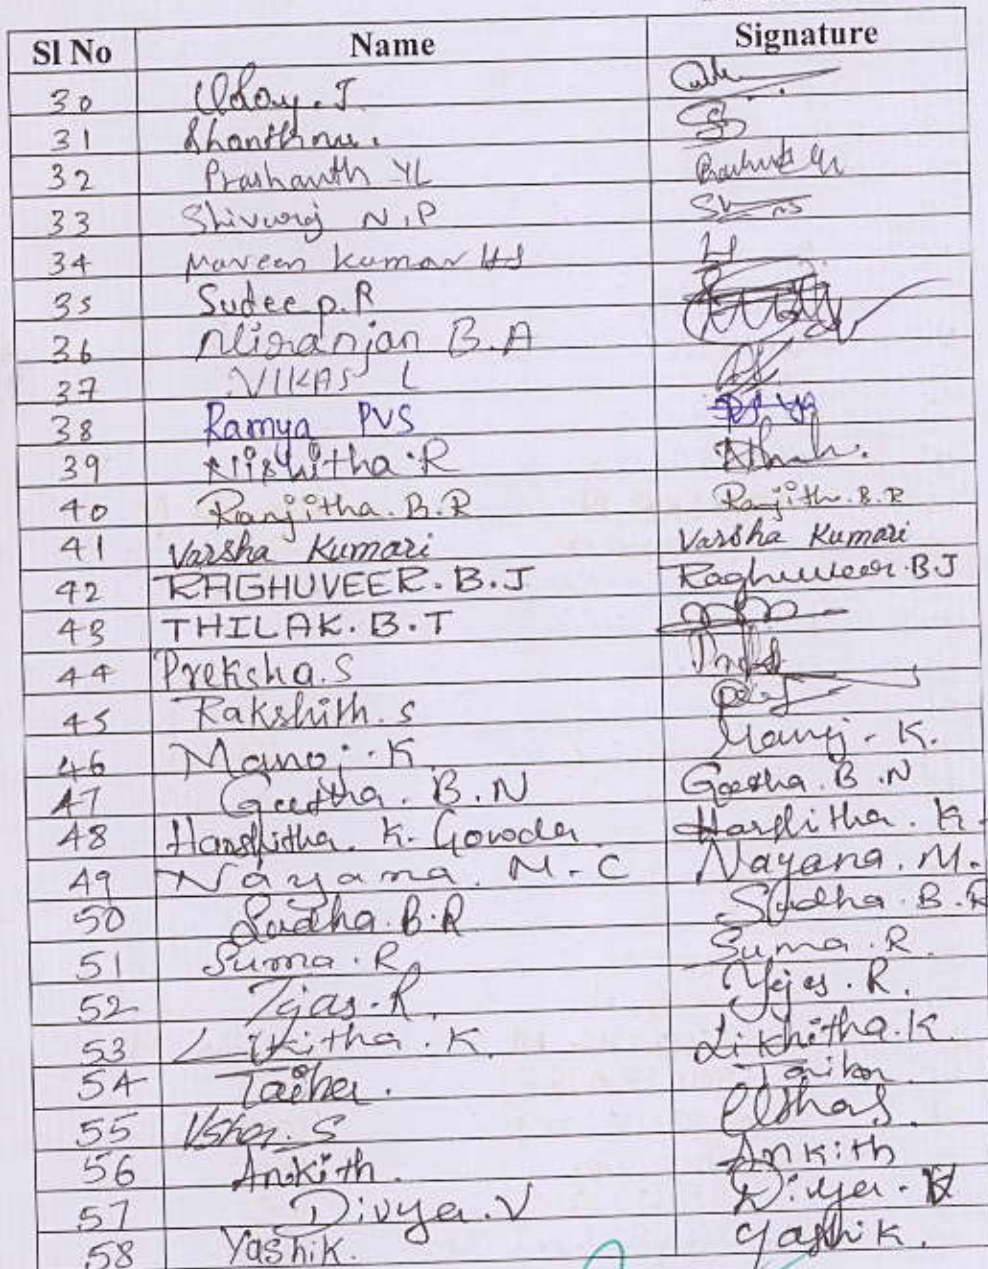 Sl No Name Signature
30 Uday. J
31 Shanthnu.
32 Prashanth YL Prashanth YL
33 Shivuraj N.P
34 Naveen Kumar HS
35 Sudeep.R
36 Niranjan B.A
37 VIKAS L
38 Ramya PVS
39 Nishitha.R
40 Ranjitha.B.R Ranjith.B.R
41 Varsha Kumari Varsha Kumari
42 RAGHUVEER.B.J Raghuveer.BJ
43 THILAK.B.T
44 Preksha.S
45 Rakshith.S
46 Manoj.K. Manoj.K.
47 Geetha.B.N Geetha.B.N
48 Harshitha.K.Gowda Harshitha.K.
49 Nayana.M.C Nayana.M.
50 Sudha.B.R Sudha.B.R
51 Suma.R Suma.R.
52 Tejas.R. Tejas.R.
53 Likitha.K. Likhitha.K
54
55 Usha.S Usha S
56 Ankith. Ankith
57 Divya.V Divya.V
58 Yashik. Yashik.